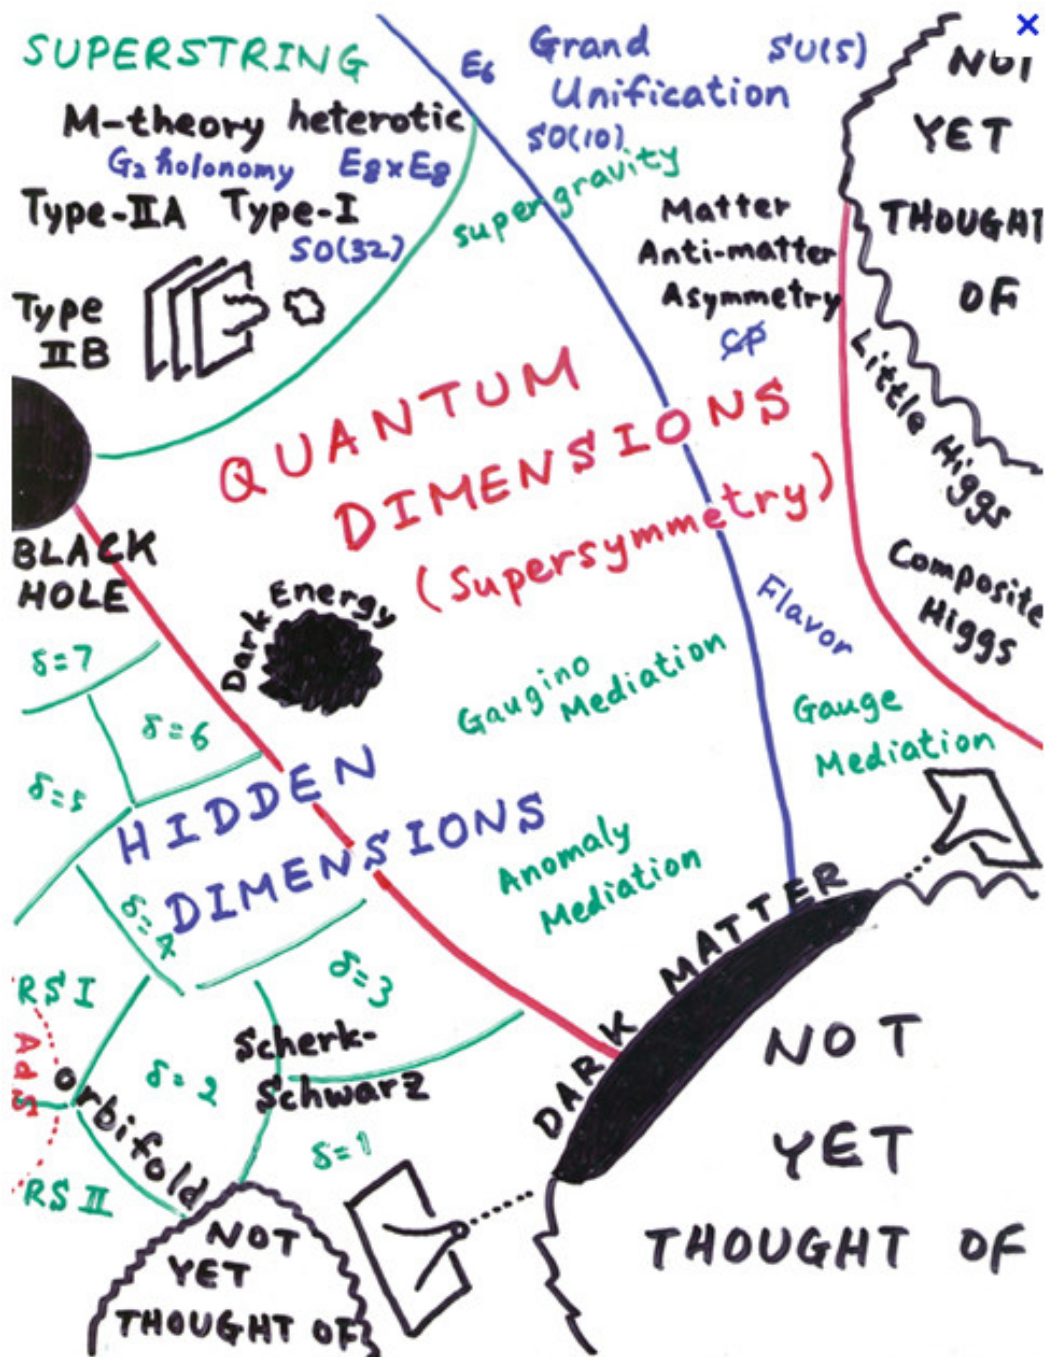 SUPERSTRING
M-theory heterotic
G₂ holonomy E₈×E₈
Type-ⅡA Type-I
SO(32)
Type
ⅡB
E₆
Grand
Unification
SU(5)
SO(10)
supergravity
Matter
Anti-matter
Asymmetry
CP
NOT
YET
THOUGHT
OF
Little Higgs
Composite
Higgs
QUANTUM
DIMENSIONS
(Supersymmetry)
BLACK
HOLE
Dark Energy
Flavor
Gaugino
Mediation
Gauge
Mediation
Anomaly
Mediation
δ=7
δ=6
δ=5
HIDDEN
DIMENSIONS
δ=4
δ=3
RS I
AdS
orbifold
δ=2
Scherk-
Schwarz
δ=1
RS Ⅱ
DARK MATTER
NOT
YET
THOUGHT OF
NOT
YET
THOUGHT OF